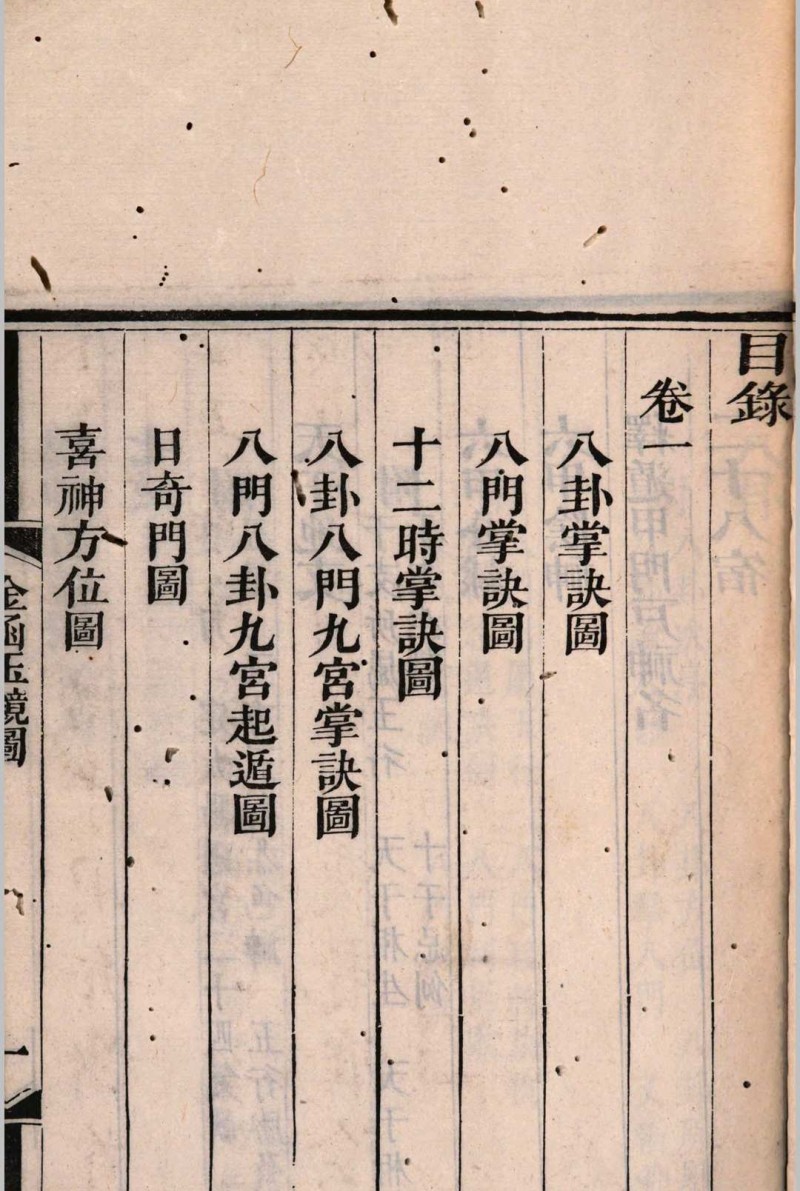 目錄
卷一
八卦掌訣圖
八門掌訣圖
十二時掌訣圖
八卦八門九宮掌訣圖
八門八卦九宮起遁圖
日奇門圖
喜神方位圖
金函玉鏡圖
一